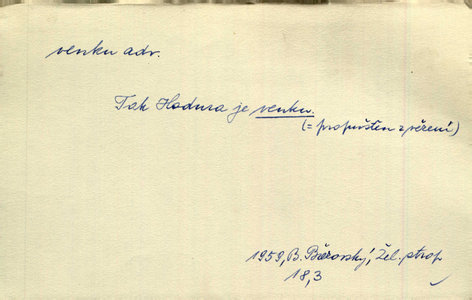 venku adv.
Tak Hodura je venku.
(= propuštěn z vězení)
1959, B. Březovský, Žel. strop
18,3